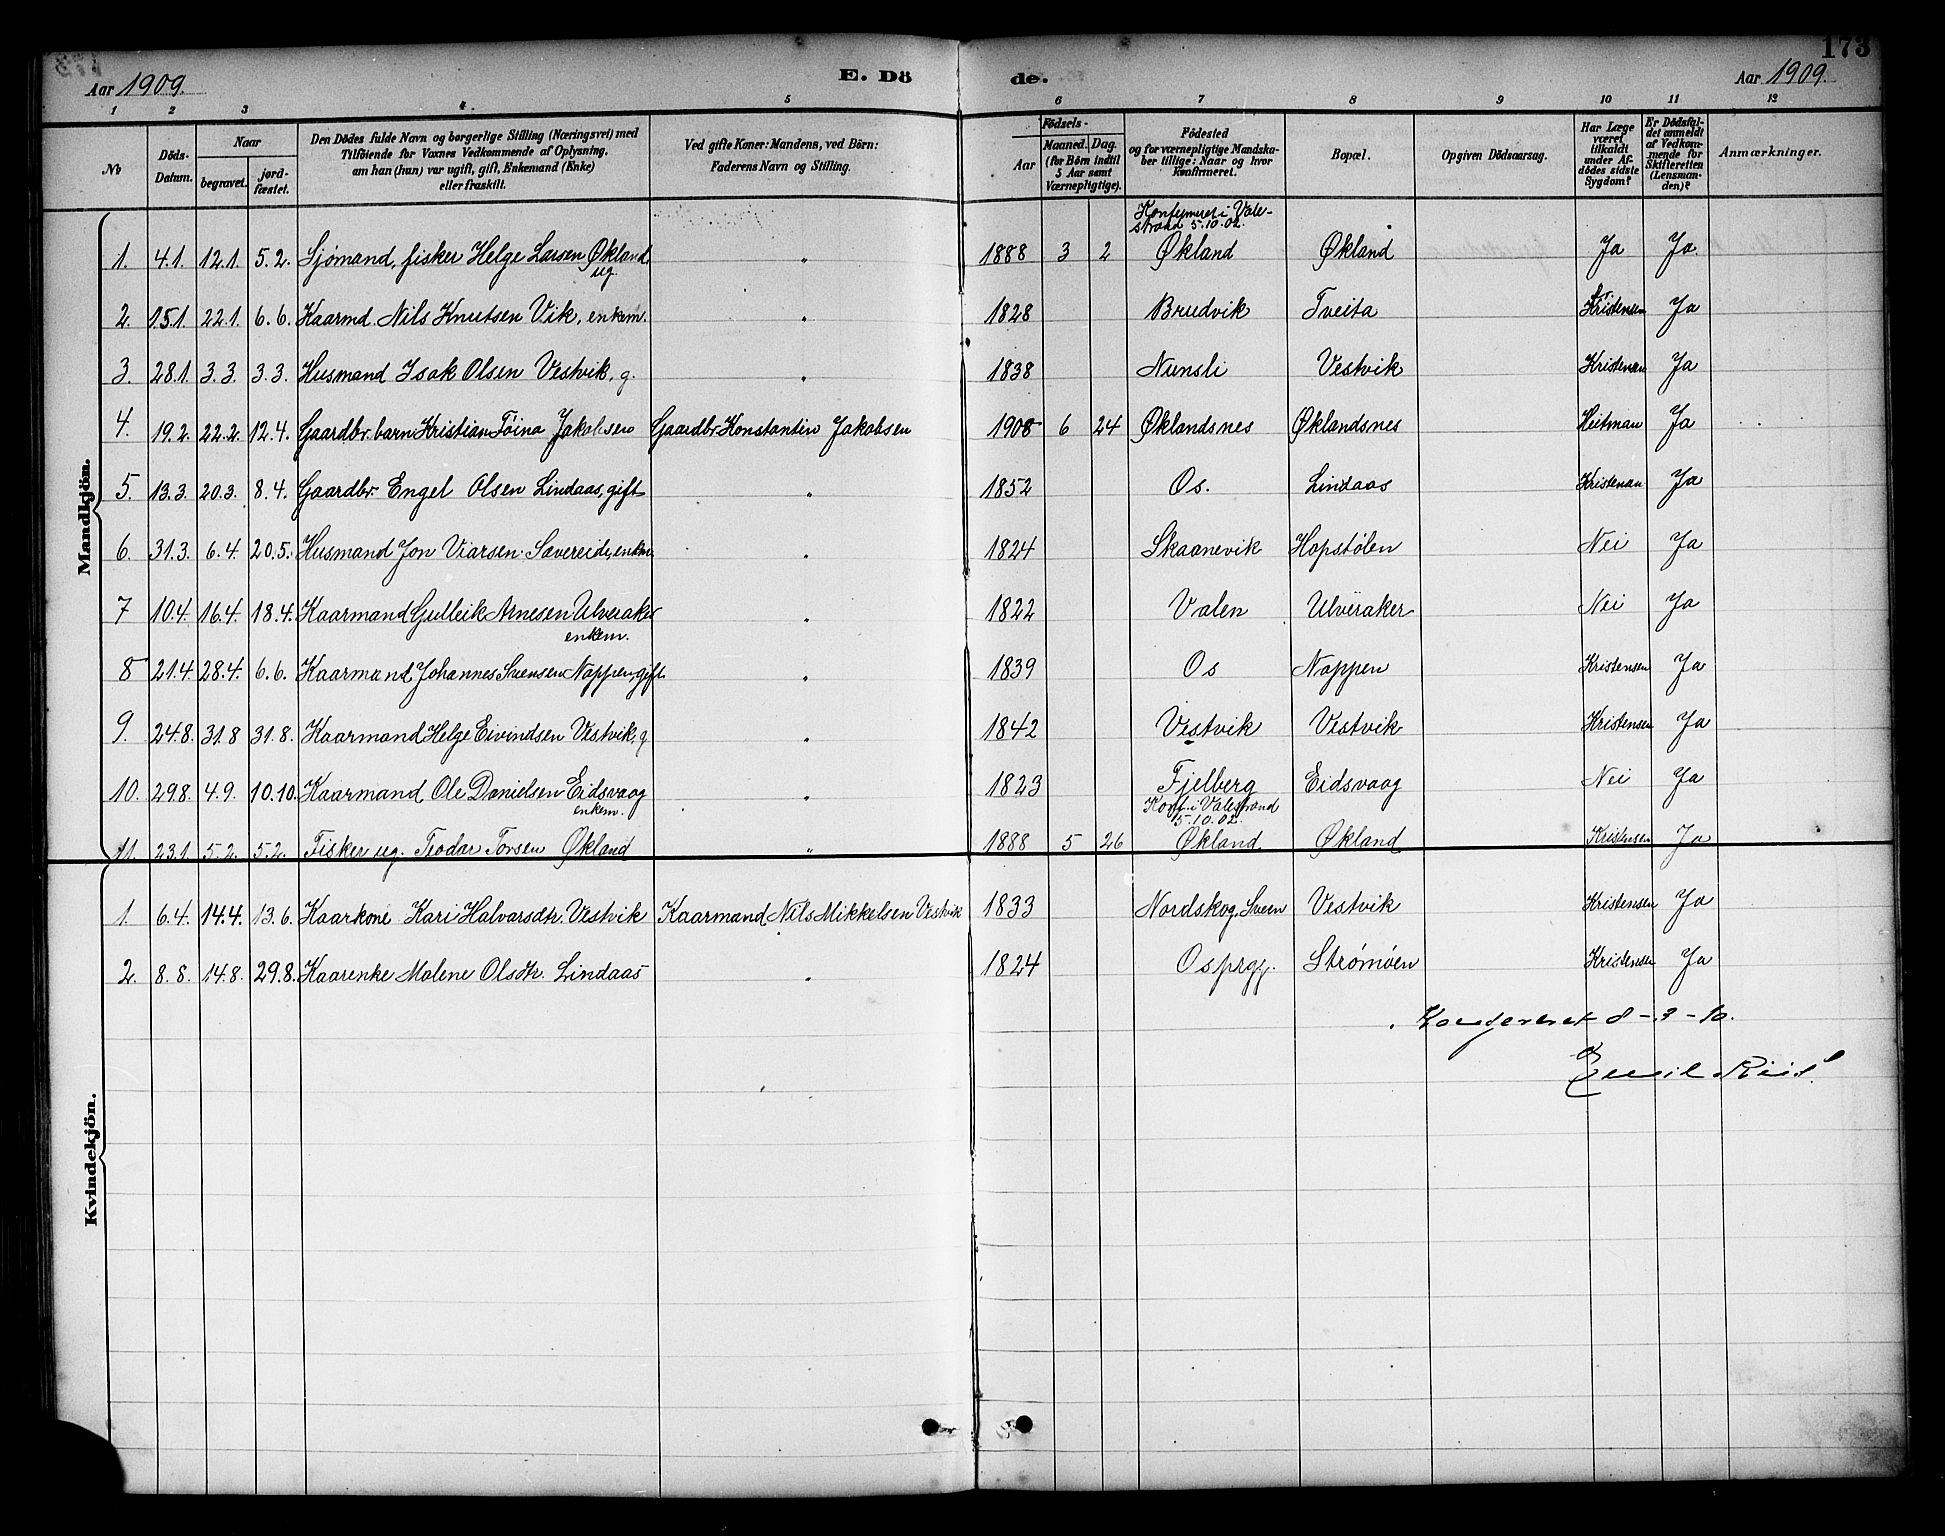 173
Aar 1909. E. Dö de. Aar 1909.
1 2 3 4. 5 6 7 8 9 10 11 12
No
Döds-Datum.
Naar
begravet.
jord-fæstet.
Den Dödes fulde Navn og borgerlige Stilling (Næringsvei) med
Tilföiende for Voxnes Vedkommende af Oplysning,
om han (hun) var ugift, gift, Enkemand (Enke)
eller fraskilt.
Ved gifte Koner: Mandens, ved Börn:
Faderens Navn og Stilling.
Födsels-
Aar
Maaned. Dag.
(for Börn indtil
5 Aar samt
Værnepligtige).
Födested
og for værnepligtige Mandska-
ber tillige: Naar og hvor
Konfirmeret.
Bopæl.
Opgiven Dödsaarsag.
Har Læge
været
tilkaldt
under Af-
dödes sidste
Sygdom?
Er Dödsfal-
det anmeldt
af Vedkom-
mende for
Skifteretten
(Lensman-
den)?
Anmærkninger.
Mandkjön.
Konfirmeret i Vale-
strand 5.10.02.
1. 4.1. 12.1. 5.2. Sjømand, fisker Helge Larsen Økland, " 1888 3 2 Økland Økland Ja Ja.
ug.
2. 15.1. 22.1. 6.6. Kaarmd. Nils Knutsen Vik, enkem. " 1828 Brudvik Tveita Kristensen Ja
3. 28.1. 3.3. 3.3. Husmand Isak Olsen Vestvik, g. " 1838 Nunsli Vestvik Kristensen Ja
4. 19.2. 22.2. 12.4. Gaardbr. barn Kristian Töino Jakobsen Gaardbr. Konstantin Jakobsen 1908 6 24 Øklandsnes Øklandsnes Heitman Ja
5. 13.3. 20.3. 8.4. Gaardbr. Engel Olsen Lindaas, gift " 1852 Os. Lindaas Kristensen Ja
6. 31.3. 6.4. 20.5. Husmand Jon Viarsen Sævereide, enkm. " 1824 Skaanevik Hopstølen Nei Ja
7 10.4. 16.4. 18.4. Kaarmand Gulleik Arnesen Ulveraker " 1822 Valen Ulveraker Nei Ja
enkem.
8 21.4 28.4. 6.6. Kaarmand Johannes Svensen Nappen, gift " 1839 Os Nappen Kristensen Ja
9. 24.8. 31.8 31.8. Kaarmand Helge Eivindsen Vestvik, g. " 1842 Vestvik Vestvik Kristensen Ja
10. 29.8. 4.9. 10.10. Kaarmand Ole Danielsen Eidsvaag " 1823 Fjelberg Eidsvaag Nei Ja
enkem.
Konf. i Valestrand
5.10.02.
11. 23.1. 5.2. 5.2. Fisker ug. Teodar Torsen Økland " 1888 5 26 Økland Økland Kristensen Ja
Kvindekjön.
1. 6.4. 14.4. 13.6. Kaarkone Kari Halvarsdtr. Vestvik Kaarmand Nils Mikkelsen Vestvik 1833 Nordskog, Sveen Vestvik Kristensen Ja
2. 8.8. 14.8. 29.8. Kaarenke Malene Olsdtr. Lindaas " 1824 Os prgj. Strømøen Kristensen Ja
Konfereret 8-3-10.
Emil Riis